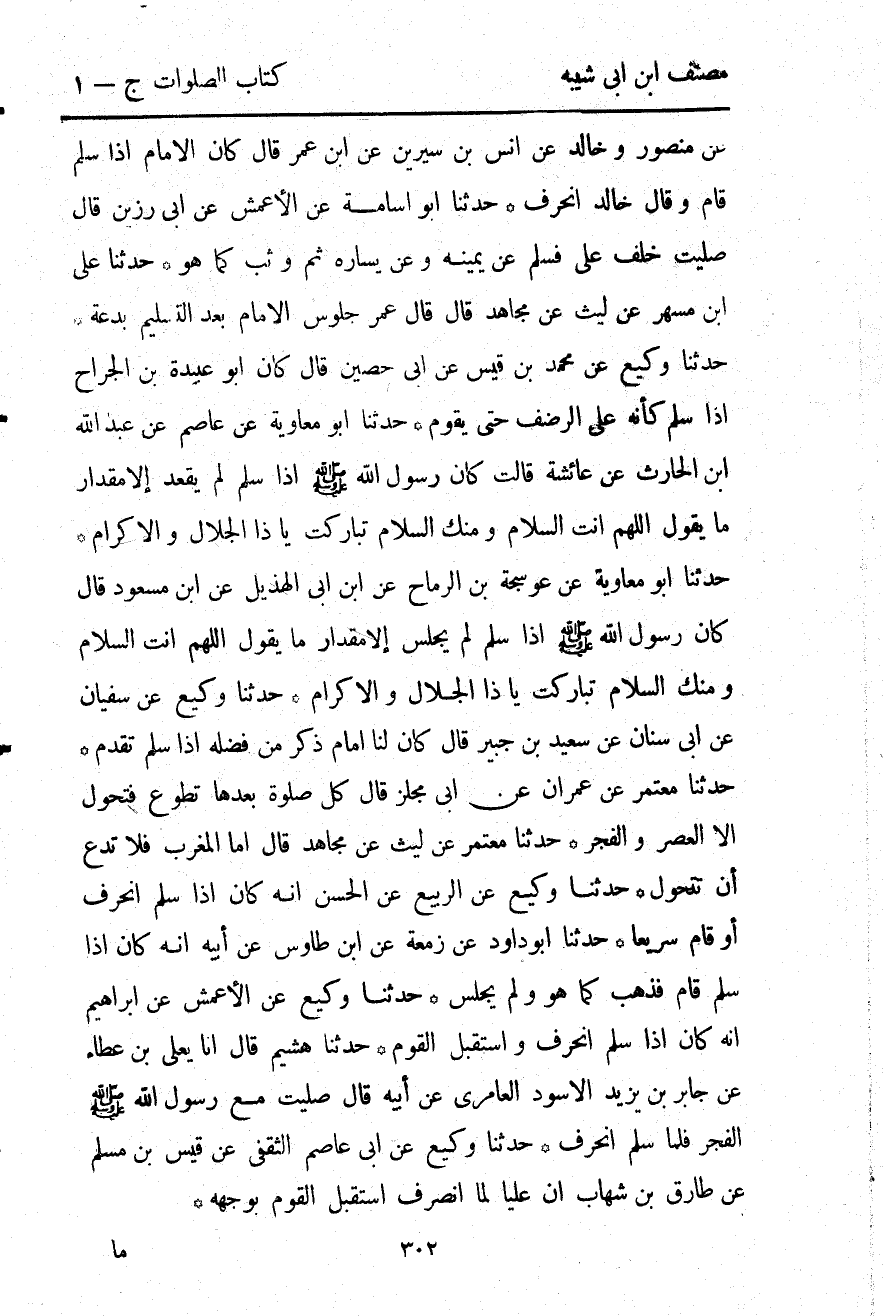 مصنف ابن ابی شیبه
كتاب الصلوات ج – ١
عن منصور و خالد عن انس بن سيرين عن ابن عمر قال كان الامام اذا سلم
قام و قال خالد انحرف * حدثنا ابو اسامة عن الأعمش عن ابى رزين قال
صليت خلف على فسلم عن يمينه و عن يساره ثم و ثب كما هو * حدثنا على
ابن مسهر عن ليث عن مجاهد قال قال عمر جلوس الامام بعد التسليم بدعة *
حدثنا وكيع عن محمد بن قيس عن ابى حصين قال كان ابو عبيدة بن الجراح
اذا سلم كأنه على الرضف حتى يقوم * حدثنا ابو معاوية عن عاصم عن عبد الله
ابن الحارث عن عائشة قالت كان رسول الله ﷺ اذا سلم لم يقعد إلا مقدار
ما يقول اللهم انت السلام و منك السلام تباركت يا ذا الجلال و الاكرام *
حدثنا ابو معاوية عن عوسجة بن الرماح عن ابن ابى الهذيل عن ابن مسعود قال
كان رسول الله ﷺ اذا سلم لم يجلس إلا مقدار ما يقول اللهم انت السلام
و منك السلام تباركت يا ذا الجلال و الاكرام * حدثنا وكيع عن سفيان
عن ابى سنان عن سعيد بن جبير قال كان لنا امام ذكر من فضله اذا سلم تقدم *
حدثنا معتمر عن عمران عن ابى مجلز قال كل صلوة بعدها تطوع فتحول
الا العصر و الفجر * حدثنا معتمر عن ليث عن مجاهد قال اما المغرب فلا تدع
أن تتحول * حدثنا وكيع عن الربيع عن الحسن انه كان اذا سلم انحرف
أو قام سريعا * حدثنا ابوداود عن زمعة عن ابن طاوس عن أبيه انه كان اذا
سلم قام فذهب كما هو و لم يجلس * حدثنا وكيع عن الأعمش عن ابراهيم
انه كان اذا سلم انحرف و استقبل القوم * حدثنا هشيم قال انا يعلى بن عطاء
عن جابر بن يزيد الاسود العامرى عن أبيه قال صليت مع رسول الله ﷺ
الفجر فلما سلم انحرف * حدثنا وكيع عن ابى عاصم الثقفى عن قيس بن مسلم
عن طارق بن شهاب ان عليا لما انصرف استقبل القوم بوجهه *
٣٠٢
ما